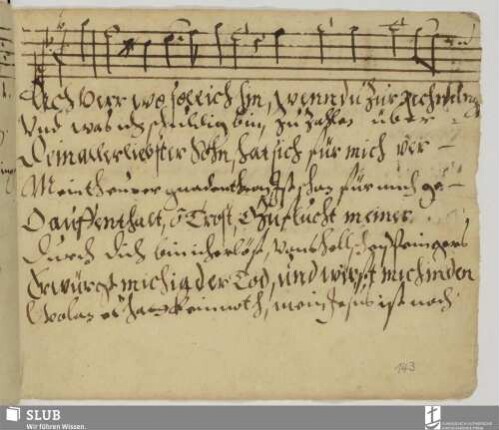 Ach Herr wo soll ich hin, wenn du zur Rechnung
Und was ich schuldig bin, zu zahlen über =
Dein allerliebster Sohn, hat sich für mich ver -
Mein theurer gnadenthron, ist schon für mich ge -
O auffenthalt, o Trost, o Zuflucht meiner
Durch dich bin ich erlöst, vons
Erwürgt mich ja der Tod, und wirfft mich in den
Wolan es hat kein noth, mein Jesus ist noch
143
SLUB
Wir führen Wissen.